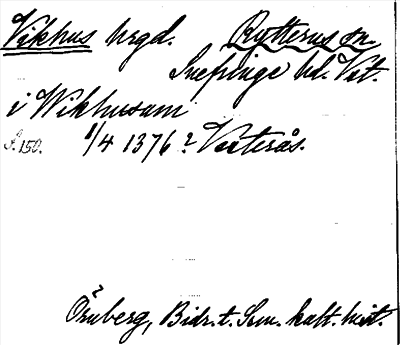 Vikhus hrgd. Rytterns sn
Snefringe hd. Vst.
i Wikhusum
S. 150. 1/4 1376 ? Vesterås.
Örnberg, Bidr. t. Sv. kalt. hist.